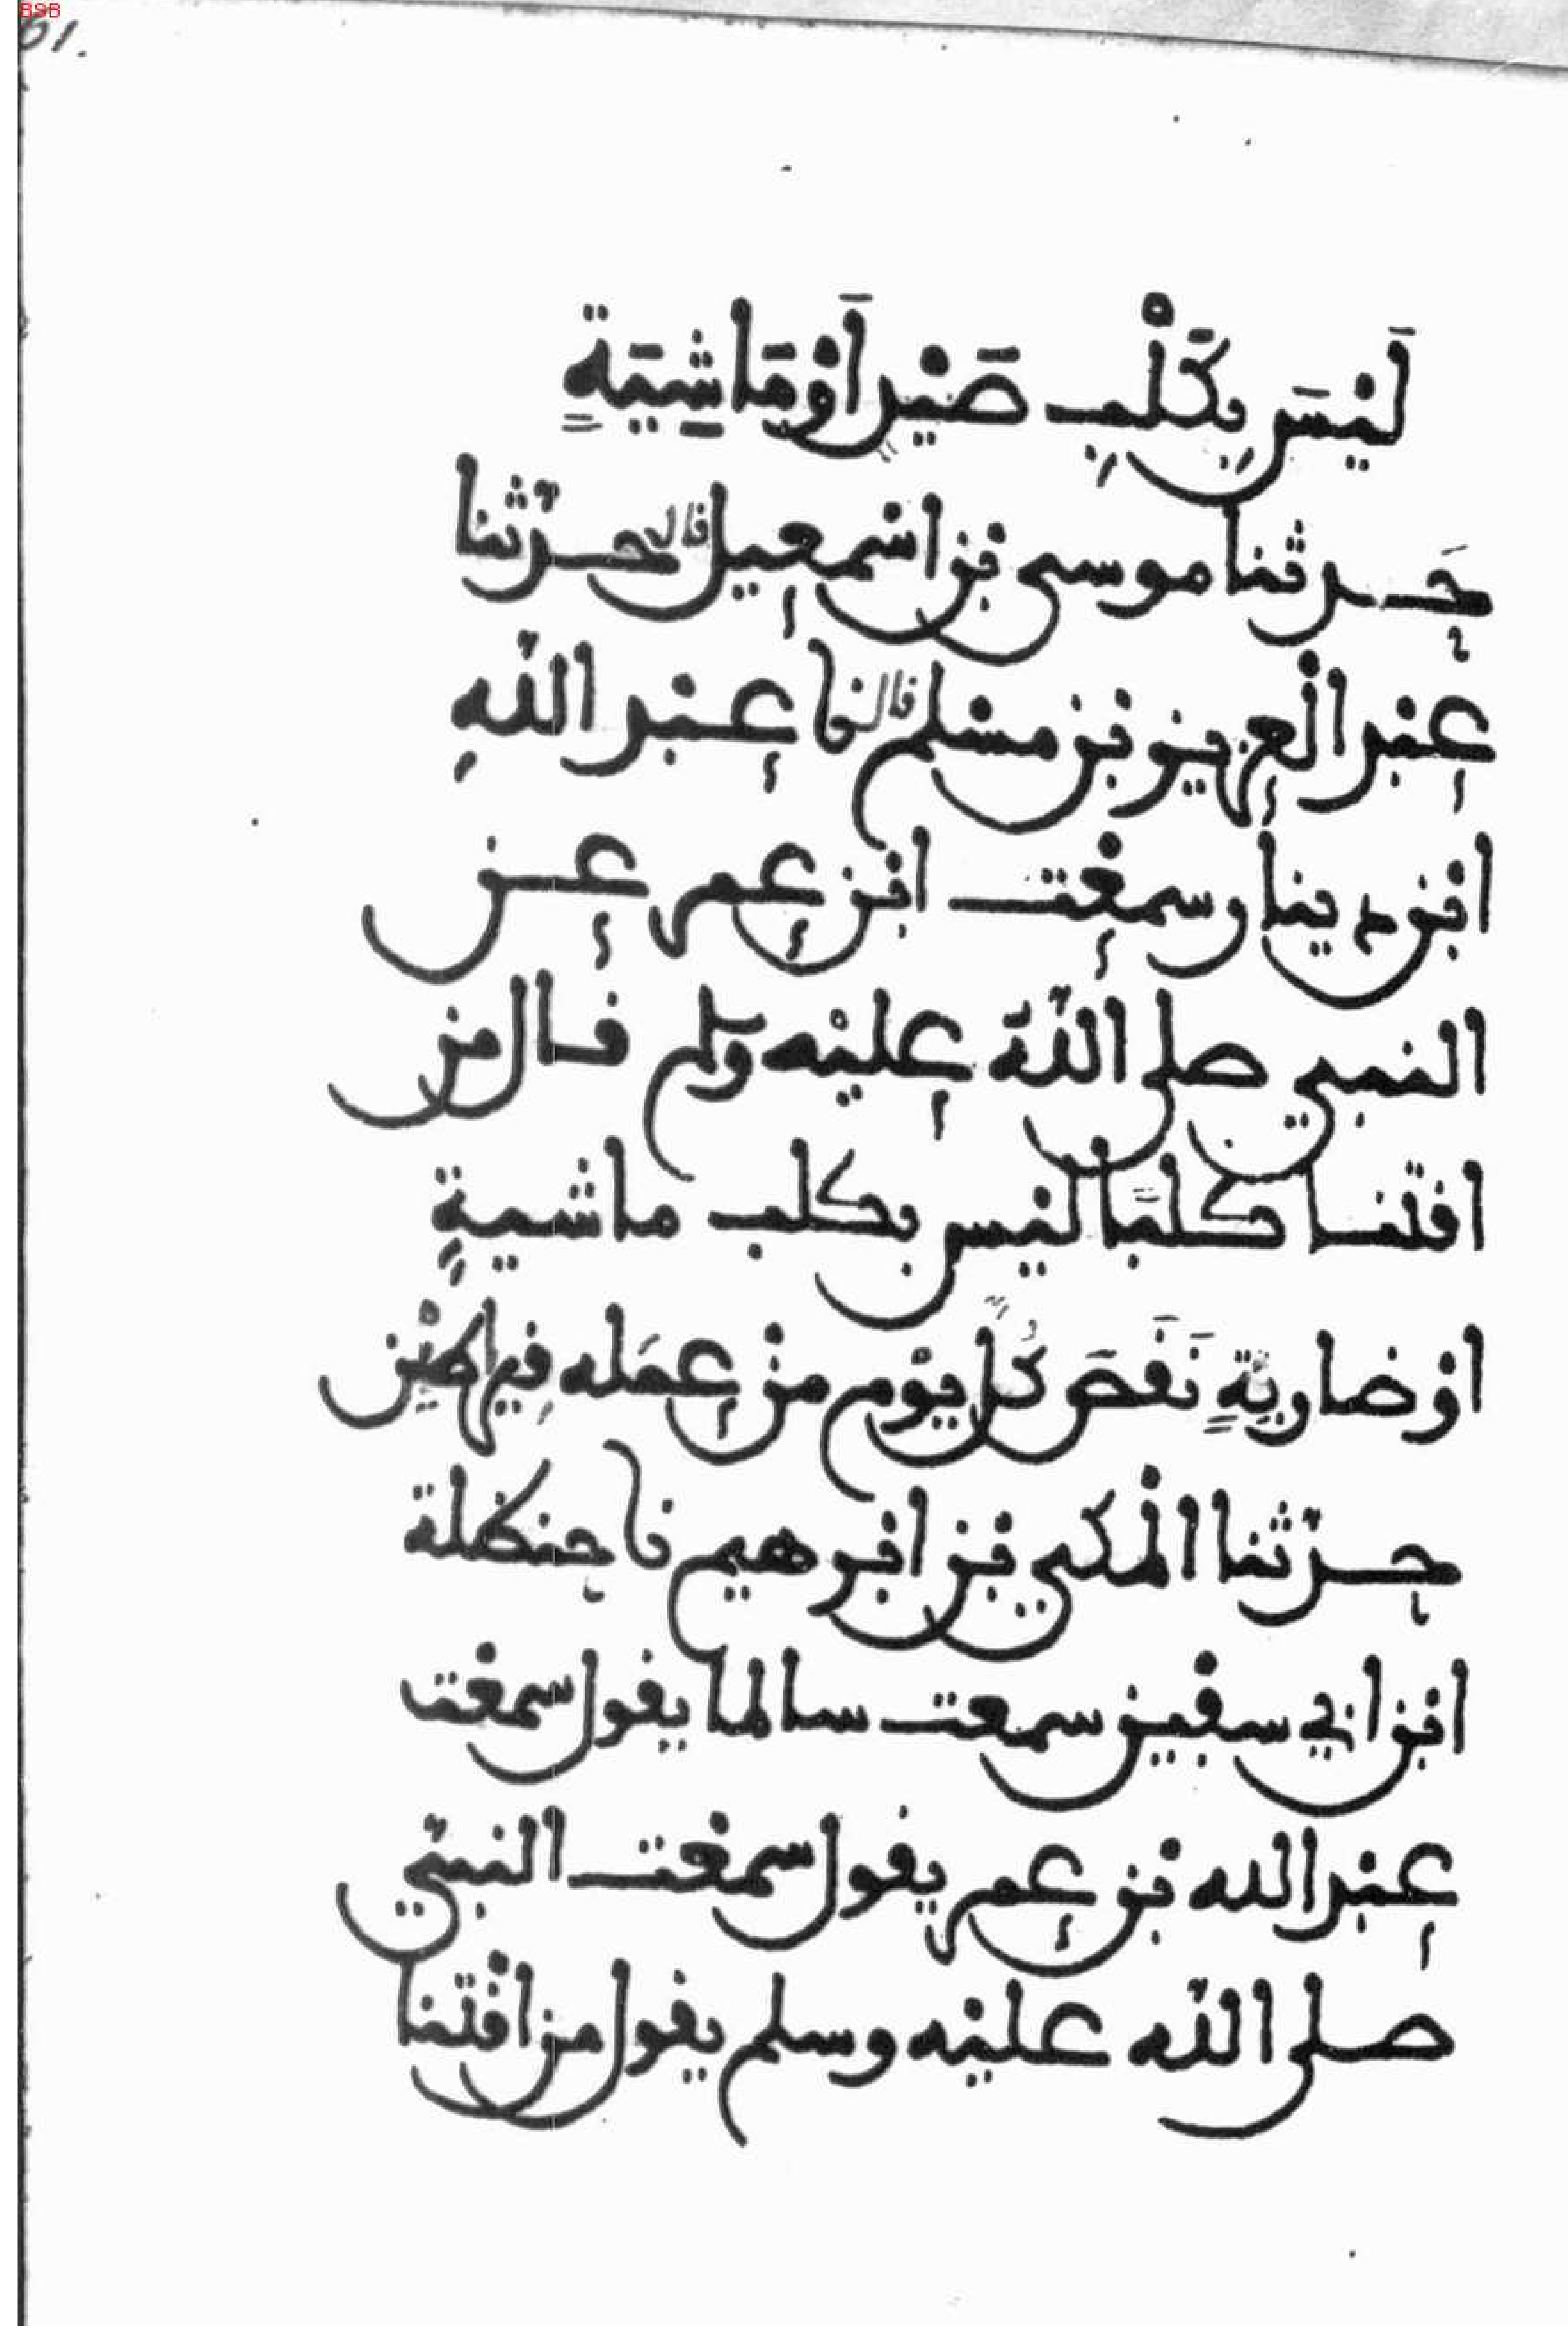 BSB
61.
لَيْسَ بِكَلْبِ صَيْدٍ اَوْ مَاشِيَةٍ
حَدثنا موسى بْن اسْمعيل قال حدّثنا
عبْد الْعزيز بْن مسْلم قال نا عبْد اللّهِ
ابْن دينار سمعْت ابْن عمر عن
النبي صلى اللّهُ عليْه وسلم قال من
اقتنا كلبًا ليْس بكلب ماشيةٍ
اوْ ضاريَةٍ نَقَصَ كُلّ يوْم منْ عمَله قِيراطيْن
حدّثنا الْمكي بْن ابْرهيم نا حنظلة
ابْن ابي سفين سمعت سالما يقول سمعْت
عبْد الله بْن عمر يقول سمعْت النبيّ
صلى اللّه عليْه وسلم يقول من اقْتنا